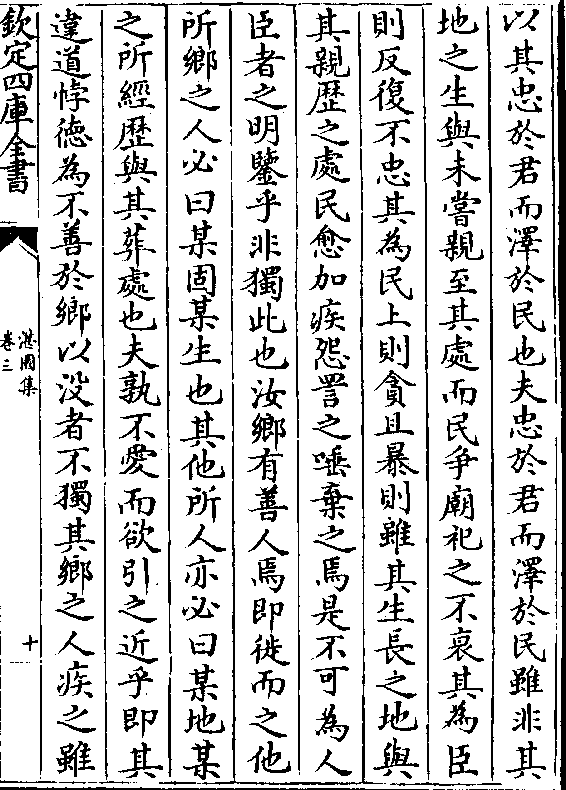 以其忠於君而澤於民也夫忠於君而澤於民雖非其
地之生與未嘗親至其處而民爭廟祀之不衰其為臣
則反復不忠其為民上則貪且暴則雖其生長之地與
其親歴之處民愈加疾怨詈之唾棄之焉是不可為人
臣者之明鑒乎非獨此也汝鄉有善人焉即徙而之他
所鄉之人必曰某固某生也其他所人亦必曰某地某
之所經歴與其葬處也夫孰不愛而欲引之近乎即其
違道悖徳為不善於鄉以没者不獨其鄉之人疾之雖
欽定四庫全書
湛園集
卷三
十